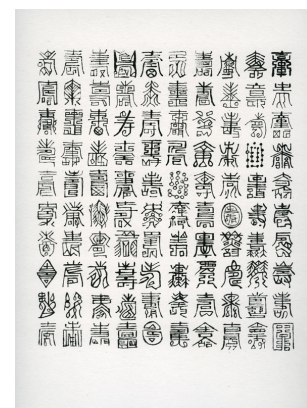 壽壽壽壽壽壽壽壽壽壽
壽壽壽壽壽壽壽壽壽壽
壽壽壽壽壽壽壽壽壽壽
壽壽壽壽壽壽壽壽壽壽
壽壽壽壽壽壽壽壽壽壽
壽壽壽壽壽壽壽壽壽壽
壽壽壽壽壽壽壽壽壽壽
壽壽壽壽壽壽壽壽壽壽
壽壽壽壽壽壽壽壽壽壽
壽壽壽壽壽壽壽壽壽壽